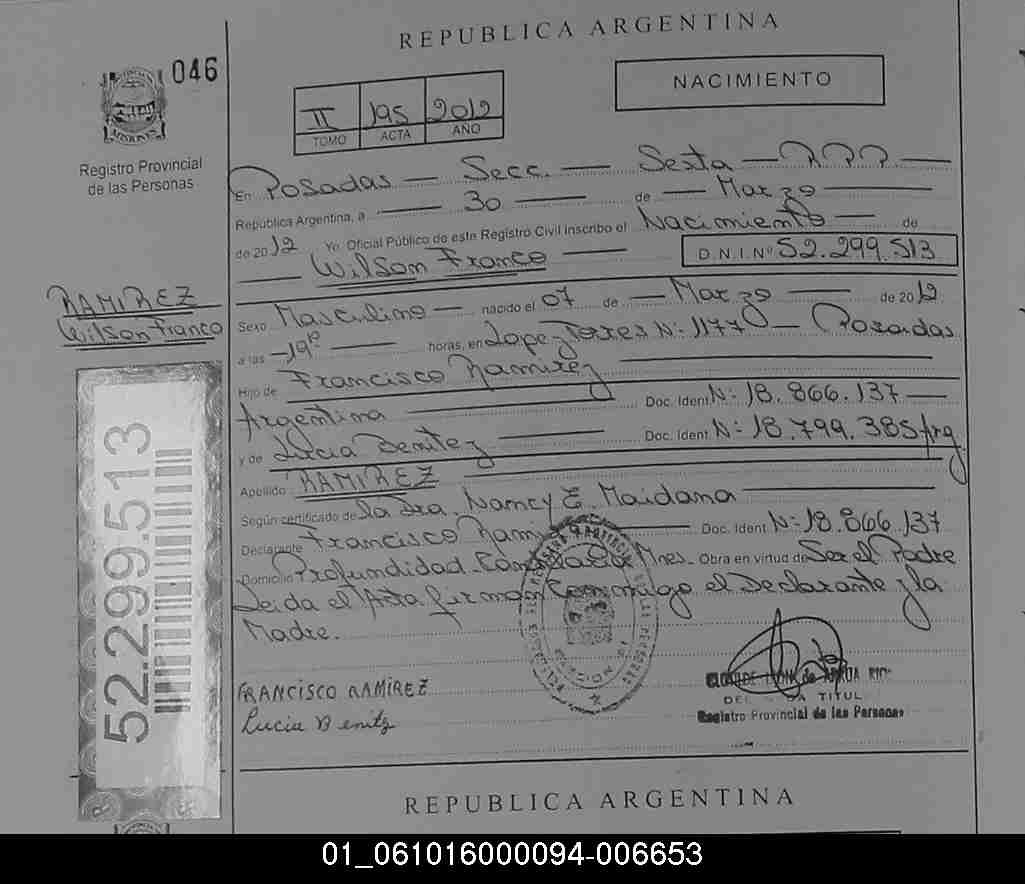 REPUBLICA ARGENTINA
046
NACIMIENTO
II 195 2012
TOMO ACTA AÑO
MISIONES
Registro Provincial
de las Personas
En Posadas — Secc. — Sesta —
República Argentina, a — 30 — de — Marzo —
de 2012 Yo, Oficial Público de este Registro Civil inscribo el Nacimiento — de
— Wilson Franco — D.N.I. Nº 52.299.513
RAMIREZ
Wilson Franco
Sexo Masculino — nacido el 07 de — Marzo — de 2012
a las — 19 — horas, en Lopez Torres Nº 1177 — Posadas
Hijo de Francisco Ramirez
Argentina — Doc. Ident. Nº 18.866.137 —
y de Lucia Benitez — Doc. Ident. Nº 18.799.385 Arg
Apellido RAMIREZ
Según certificado de la Dra. Nancy E. Maidana —
Declarante Francisco — Doc. Ident. Nº 18.866.137
Domicilio Profundidad Mnes. Obra en virtud de Ser el Padre
Leida el Acta firman Conmigo el Declarante y la
Madre.
FRANCISCO RAMIREZ
Lucia Benitz
TITUL
Registro Provincial de las Personas
52.299.513
REPUBLICA ARGENTINA
01_061016000094-006653